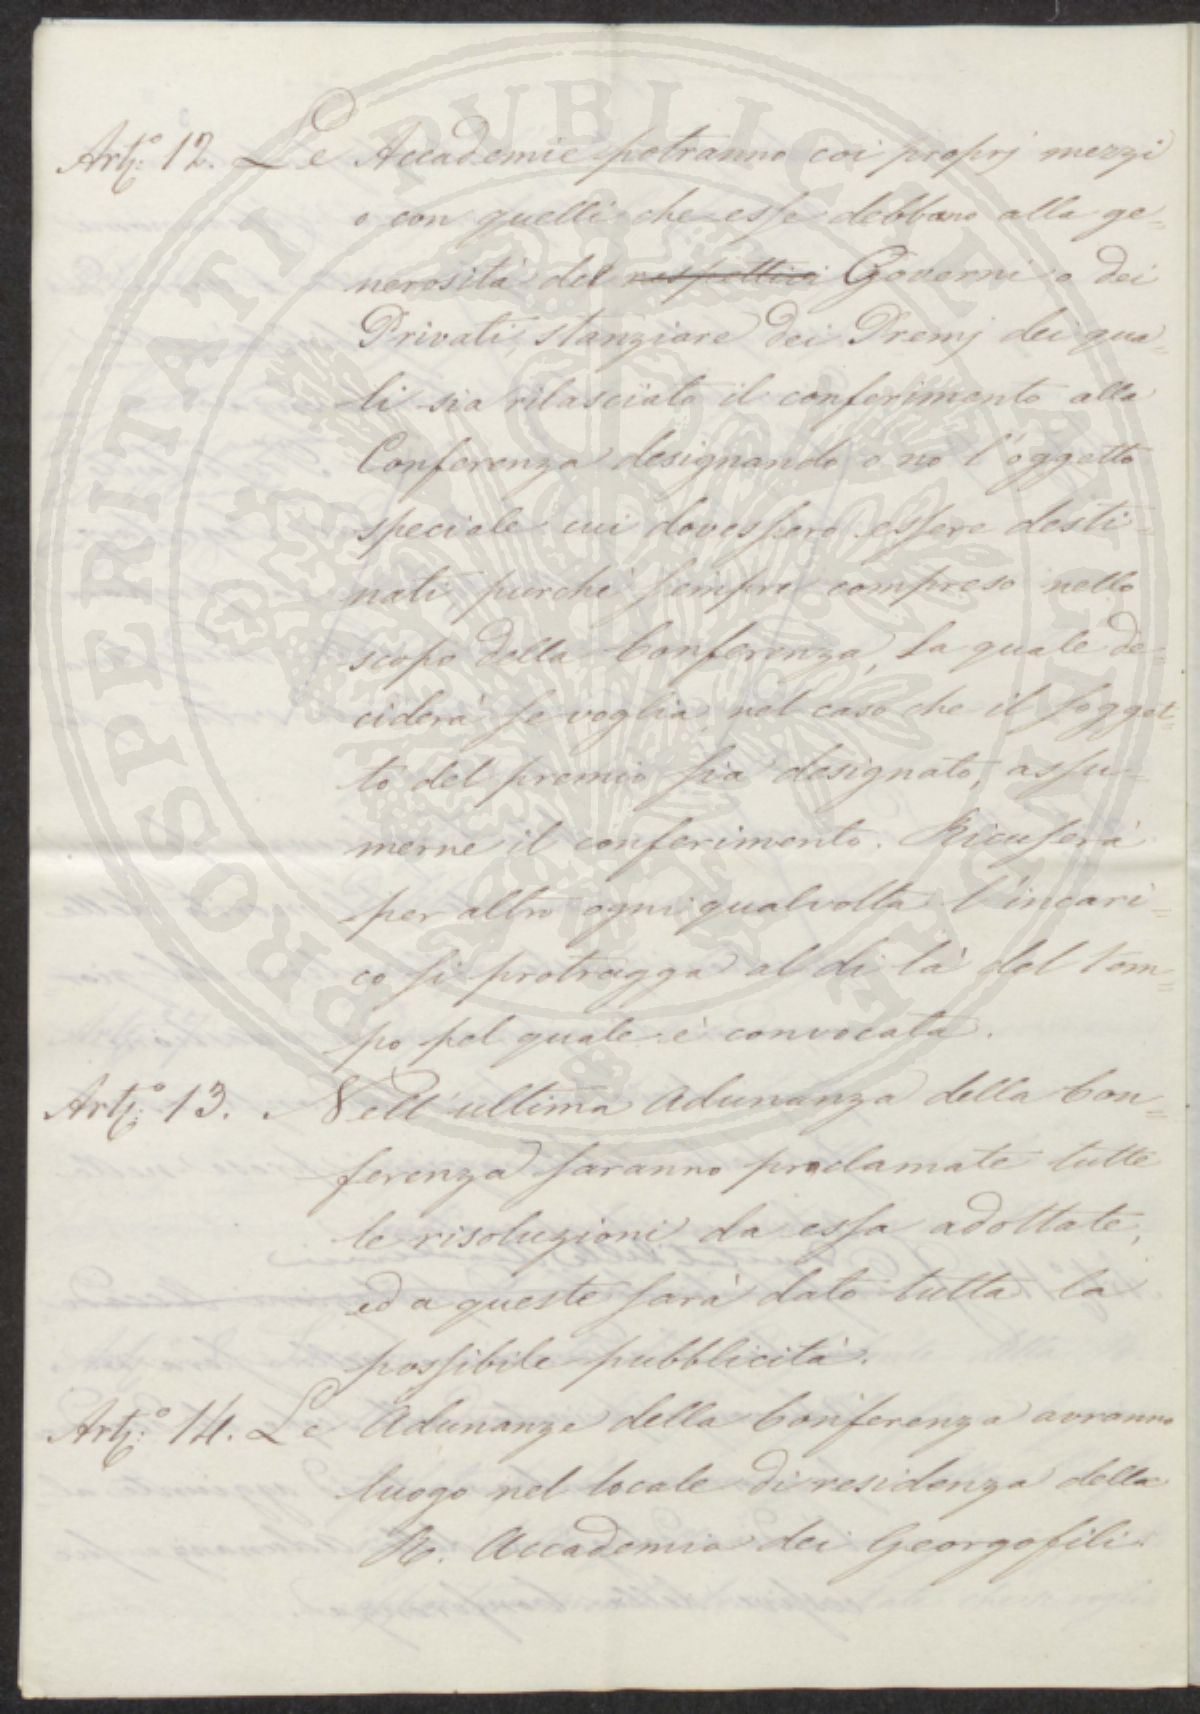 PROSPERITATI PUBLICAE AUGENDAE
Art.º 12. Le Accademie potranno coi proprj mezzi
o con quelli che esse debbano alla ge=
nerosità del respettivi Governi o dei
Privati, stanziare dei Premj dei qua=
li sia rilasciato il conferimento alla
Conferenza designando o no l'oggetto
speciale cui dovessero essere desti=
nati, purchè sempre compreso nello
scopo della Conferenza, la quale de=
ciderà se voglia, nel caso che il sogget=
to del premio sia designato, assu=
merne il conferimento. Ricuserà
per altro ogni qualvolta l'incari=
co si protragga al di là del tem=
po pel quale è convocata.
Art.º 13. Nell'ultima Adunanza della Con=
ferenza saranno proclamate tutte
le risoluzioni da essa adottate,
ed a queste sarà dato tutta la
possibile pubblicità.
Art.º 14. Le Adunanze della Conferenza avranno
luogo nel locale di residenza della
R. Accademia dei Georgofili.